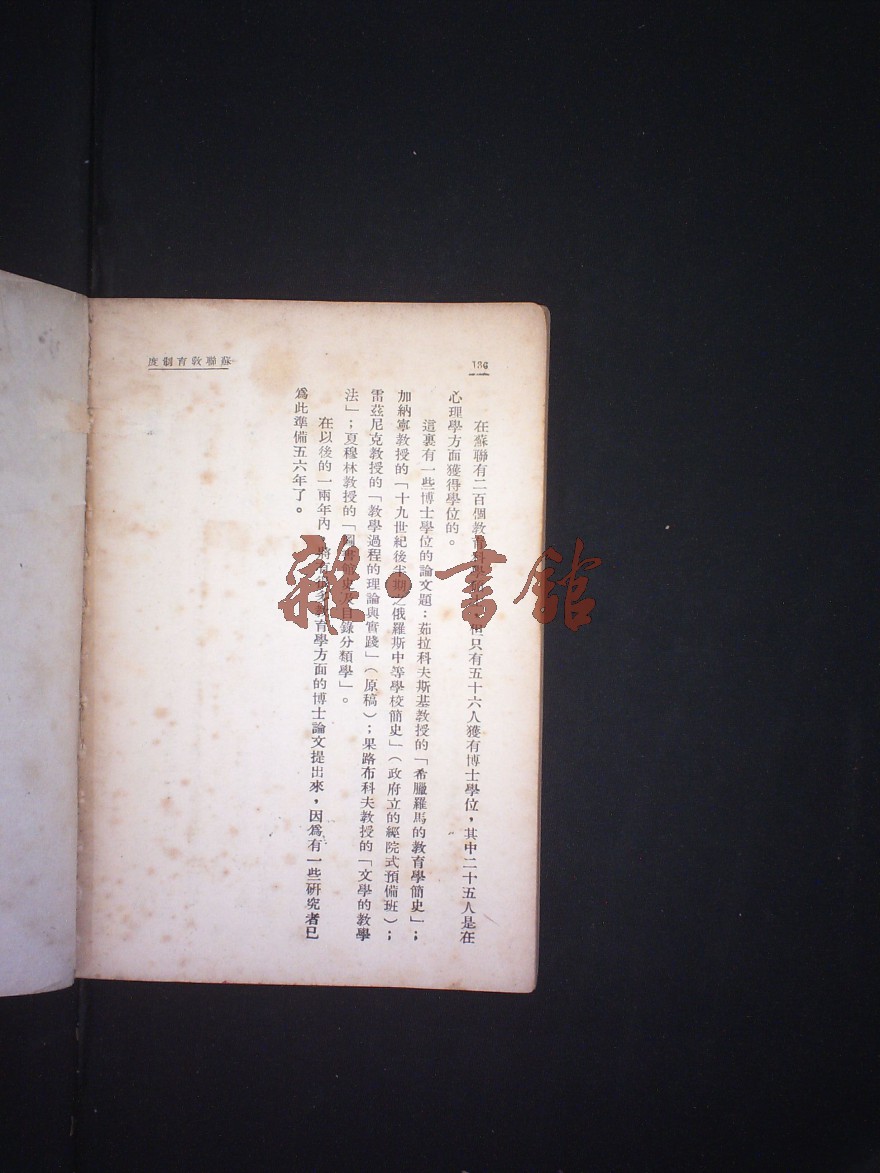 136
蘇聯教育制度
在蘇聯有二百個教育科學 但只有五十六人獲有博士學位，其中二十五人是在
心理學方面獲得學位的。
這裏有一些博士學位的論文題：茹拉科夫斯基教授的「希臘羅馬的教育學簡史」；
加納寧教授的「十九世紀後半期之俄羅斯中等學校簡史」（政府立的經院式預備班）；
雷茲尼克教授的「教學過程的理論與實踐」（原稿）；果路布科夫教授的「文學的教學
法」；夏穆林教授的「圖書館史及目錄分類學」。
在以後的一兩年內 將有很多教育學方面的博士論文提出來，因爲有一些研究者已
爲此準備五六年了。
雜·書館